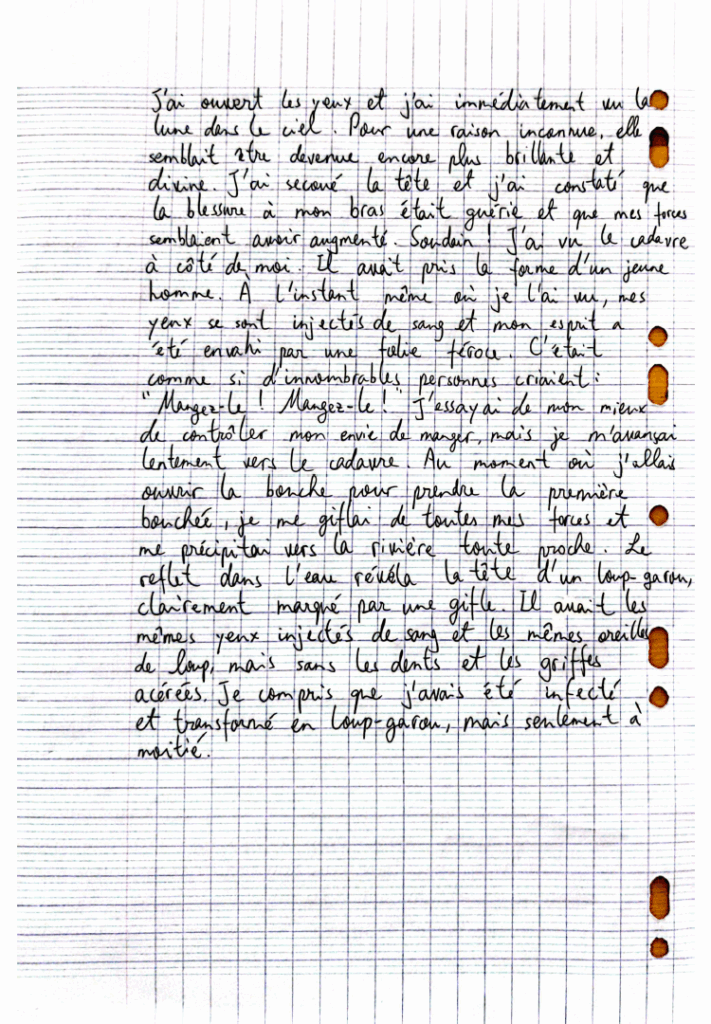 J'ai ouvert les yeux et j'ai immédiatement vu la
lune dans le ciel. Pour une raison inconnue, elle
semblait être devenue encore plus brillante et
divine. J'ai secoué la tête et j'ai constaté que
la blessure à mon bras était guérie et que mes forces
semblaient avoir augmenté. Soudain ! J'ai vu le cadavre
à côté de moi. Il avait pris la forme d'un jeune
homme. À l'instant même où je l'ai vu, mes
yeux se sont injectés de sang et mon esprit a
été envahi par une folie féroce. C'était
comme si d'innombrables personnes criaient :
"Mangez-le ! Mangez-le !" J'essayai de mon mieux
de contrôler mon envie de manger, mais je m'avançai
lentement vers le cadavre. Au moment où j'allais
ouvrir la bouche pour prendre la première
bouchée, je me giflai de toutes mes forces et
me précipitai vers la rivière toute proche. Le
reflet dans l'eau révéla la tête d'un loup-garou,
clairement marqué par une gifle. Il avait les
mêmes yeux injectés de sang et les mêmes oreilles
de loup, mais sans les dents et les griffes
acérées. Je compris que j'avais été infecté
et transformé en loup-garou, mais seulement à
moitié.